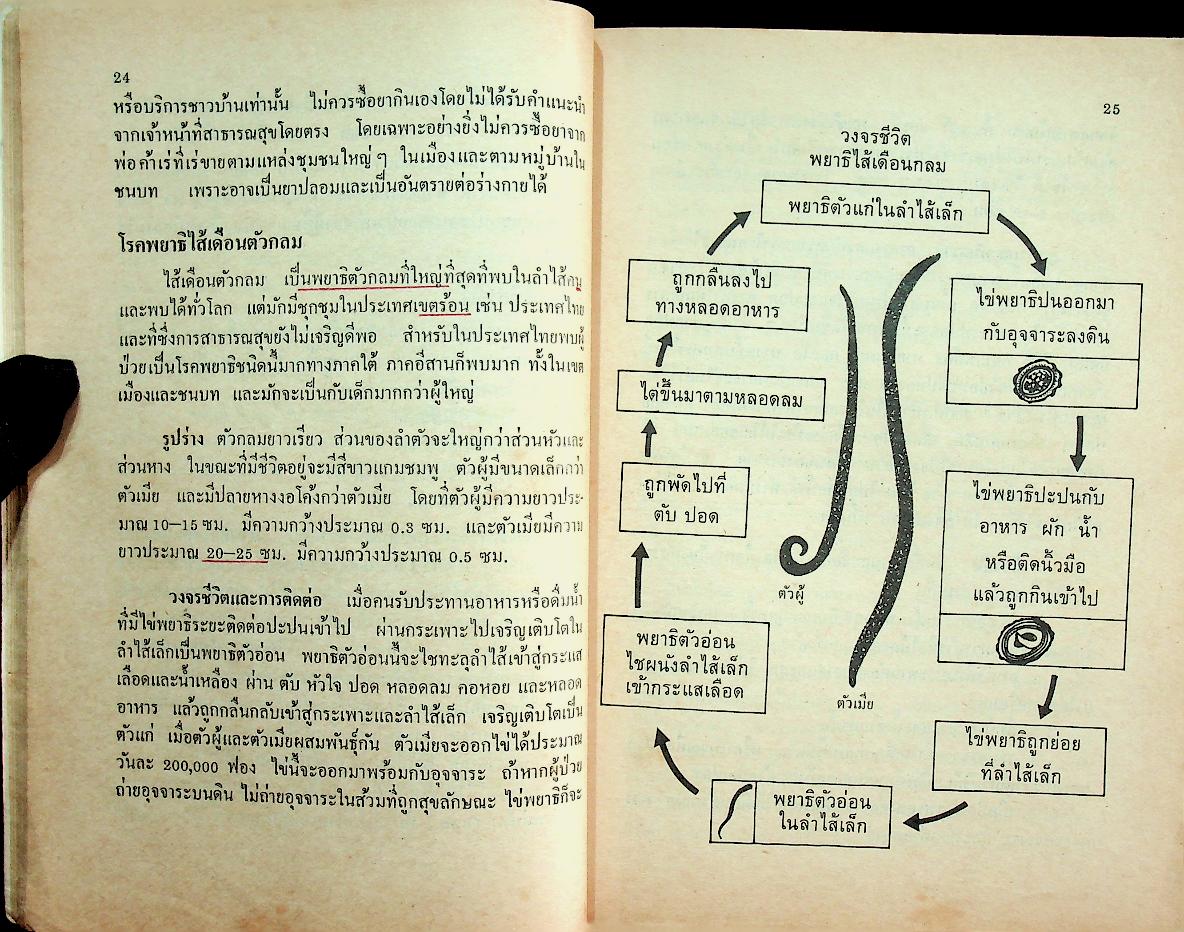 24
หรือบริการชาวบ้านเท่านั้น ไม่ควรซื้อยากินเองโดยไม่ได้รับคำแนะนำ
จากเจ้าหน้าที่สาธารณสุขโดยตรง โดยเฉพาะอย่างยิ่งไม่ควรซื้อยาจาก
พ่อค้าเร่ที่เร่ขายตามแหล่งชุมชนใหญ่ๆ ในเมืองและตามหมู่บ้านใน
ชนบท เพราะอาจเป็นยาปลอมและเป็นอันตรายต่อร่างกายได้
โรคพยาธิไส้เดือนตัวกลม
ไส้เดือนตัวกลม เป็นพยาธิตัวกลมที่ใหญ่ที่สุดที่พบในลำไส้คน
และพบได้ทั่วโลก แต่มักมีชุกชุมในประเทศเขตร้อน เช่น ประเทศไทย
และที่ซึ่งการสาธารณสุขยังไม่เจริญดีพอ สำหรับในประเทศไทยพบผู้
ป่วยเป็นโรคพยาธิชนิดนี้มากทางภาคใต้ ภาคอีสานก็พบมาก ทั้งในเขต
เมืองและชนบท และมักจะเป็นกับเด็กมากกว่าผู้ใหญ่
รูปร่าง ตัวกลมยาวเรียว ส่วนของลำตัวจะใหญ่กว่าส่วนหัวและ
ส่วนหาง ในขณะที่มีชีวิตอยู่จะมีสีขาวแกมชมพู ตัวผู้มีขนาดเล็กกว่า
ตัวเมีย และมีปลายหางงอโค้งกว่าตัวเมีย โดยที่ตัวผู้มีความยาวประ-
มาณ 10—15 ซม. มีความกว้างประมาณ 0.3 ซม. และตัวเมียมีความ
ยาวประมาณ 20—25 ซม. มีความกว้างประมาณ 0.5 ซม.
วงจรชีวิตและการติดต่อ เมื่อคนรับประทานอาหารหรือดื่มน้ำ
ที่มีไข่พยาธิระยะติดต่อปะปนเข้าไป ผ่านกระเพาะไปเจริญเติบโตใน
ลำไส้เล็กเป็นพยาธิตัวอ่อน พยาธิตัวอ่อนนี้จะไชทะลุลำไส้เข้าสู่กระแส
เลือดและน้ำเหลือง ผ่าน ตับ หัวใจ ปอด หลอดลม คอหอย และหลอด
อาหาร แล้วถูกกลืนกลับเข้าสู่กระเพาะและลำไส้เล็ก เจริญเติบโตเป็น
ตัวแก่ เมื่อตัวผู้และตัวเมียผสมพันธุ์กัน ตัวเมียจะออกไข่ได้ประมาณ
วันละ 200,000 ฟอง ไข่นี้จะออกมาพร้อมกับอุจจาระ ถ้าหากผู้ป่วย
ถ่ายอุจจาระบนดิน ไม่ถ่ายอุจจาระในส้วมที่ถูกสุขลักษณะ ไข่พยาธิก็จะ
25
วงจรชีวิต
พยาธิไส้เดือนกลม
พยาธิตัวแก่ในลำไส้เล็ก
ไข่พยาธิปนออกมา
กับอุจจาระลงดิน
ไข่พยาธิปะปนกับ
อาหาร ผัก น้ำ
หรือติดนิ้วมือ
แล้วถูกกินเข้าไป
ไข่พยาธิถูกย่อย
ที่ลำไส้เล็ก
พยาธิตัวอ่อน
ในลำไส้เล็ก
พยาธิตัวอ่อน
ไชผนังลำไส้เล็ก
เข้ากระแสเลือด
ถูกพัดไปที่
ตับ ปอด
ไต่ขึ้นมาตามหลอดลม
ถูกกลืนลงไป
ทางหลอดอาหาร
ตัวผู้
ตัวเมีย